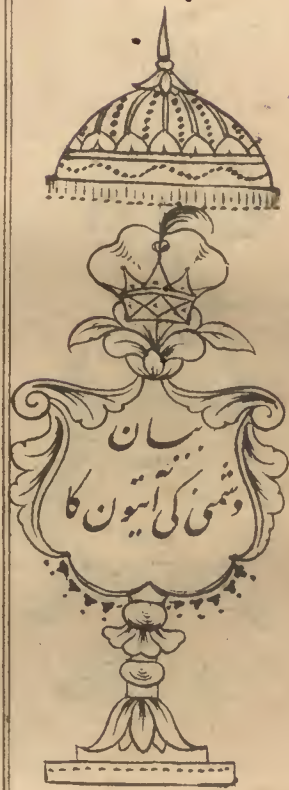 بیان
دشمنی کی آیتون کا